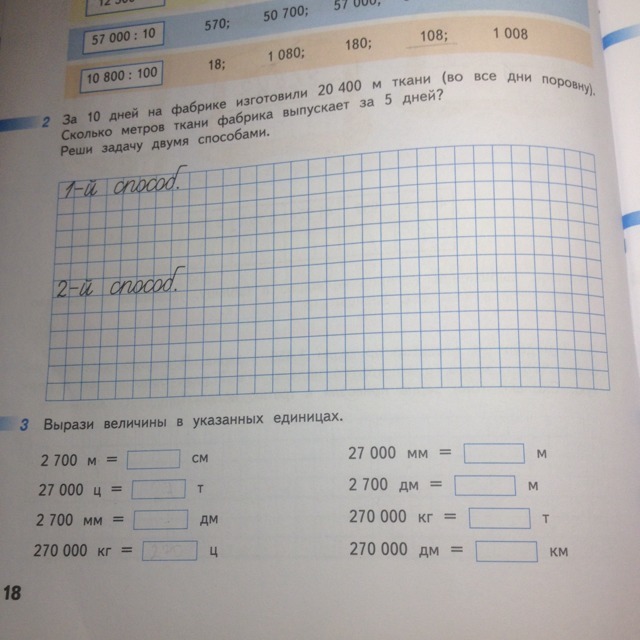 57 000 : 10 570; 50 700; 57 000;
10 800 : 100 18; 1 080; 180; 108; 1 008
2 За 10 дней на фабрике изготовили 20 400 м ткани (во все дни поровну).
Сколько метров ткани фабрика выпускает за 5 дней?
Реши задачу двумя способами.
1-й способ.
2-й способ.
3 Вырази величины в указанных единицах.
2 700 м = см 27 000 мм = м
27 000 ц = т 2 700 дм = м
2 700 мм = дм 270 000 кг = т
270 000 кг = ц 270 000 дм = км
18